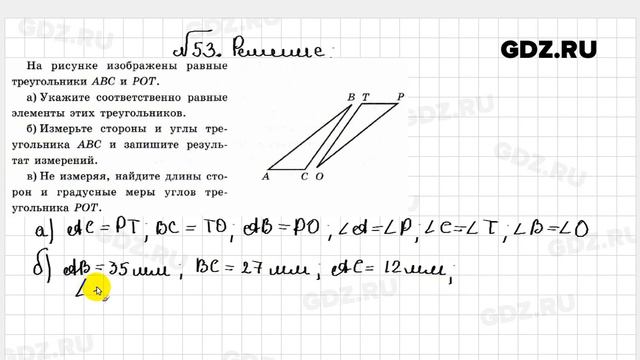 №53. Решение:
GDZ.RU
На рисунке изображены равные
треугольники ABC и POT.
а) Укажите соответственно равные
элементы этих треугольников.
б) Измерьте стороны и углы тре-
угольника ABC и запишите резуль-
тат измерений.
в) Не измеряя, найдите длины сто-
рон и градусные меры углов тре-
угольника POT.
B T P
A C O
а) AC = PT; BC = TO; AB = PO; ∠A = ∠P; ∠C = ∠T; ∠B = ∠O
б) AB = 35 мм; BC = 27 мм; AC = 12 мм;
∠